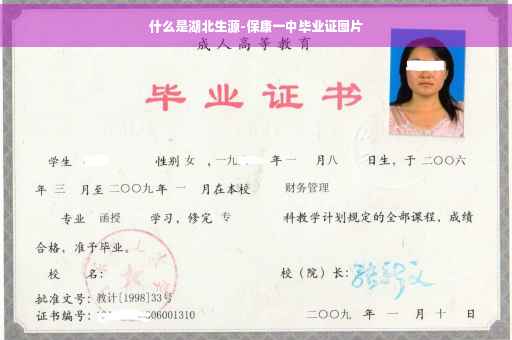 什么是湖北生源-保康一中毕业证图片
成人高等教育
毕业证书
学生 性别 女 ，一九 年 一 月八 日生，于 二〇〇六
年 三 月至 二〇〇九 年 一 月在本校 财务管理
专业 函授 学习，修完 专 科教学计划规定的全部课程，成绩
合格，准予毕业。
校 名： 校（院）长：
批准文号：教计[1998]33号
证书编号： 06001310 二〇〇九 年 一 月 十 日